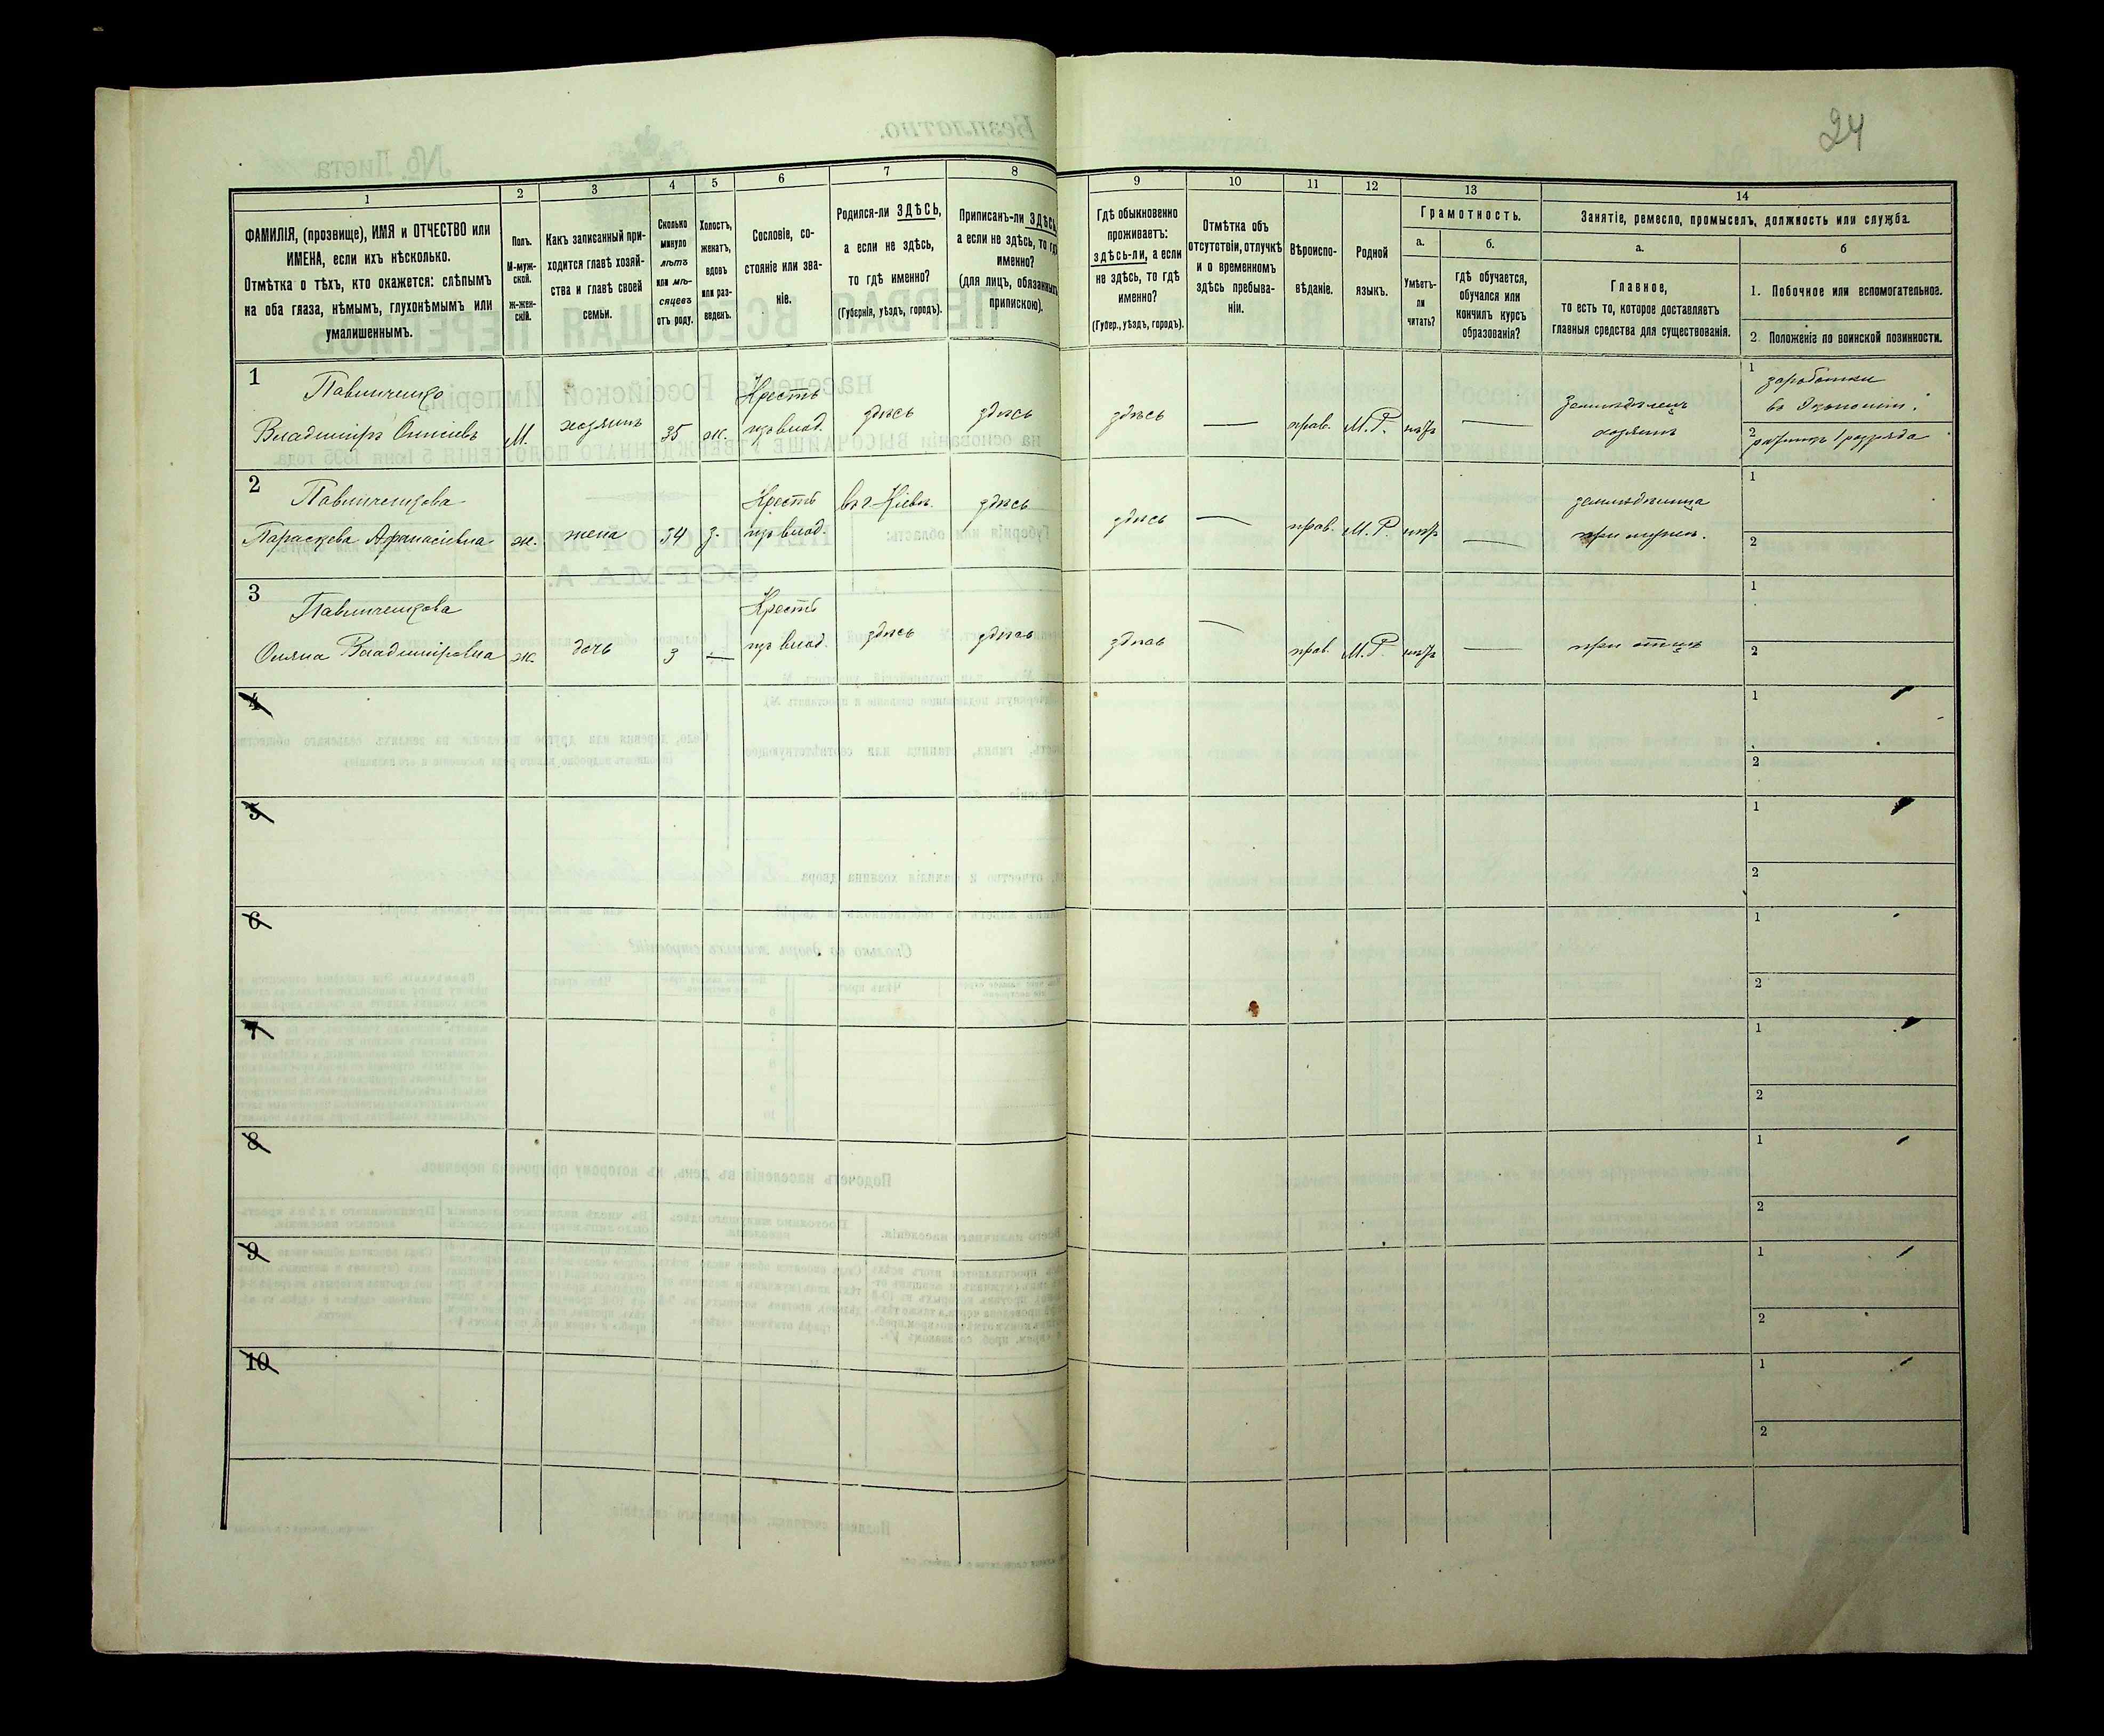 24
1
2
3
4
5
6
7
8
9
10
11
12
13
14
ФАМИЛІЯ, (прозвище), ИМЯ и ОТЧЕСТВО или
ИМЕНА, если ихъ нѣсколько.
Отмѣтка о тѣхъ, кто окажется: слѣпымъ
на оба глаза, нѣмымъ, глухонѣмымъ или
умалишеннымъ.
Полъ.
М-муж-
ской.
ж-жен-
скій.
Какъ записанный при-
ходится главѣ хозяй-
ства и главѣ своей
семьи.
Сколько
минуло
лѣтъ
или мѣ-
сяцевъ
отъ роду.
Холостъ,
женатъ,
вдовъ
или раз-
веденъ.
Сословіе, со-
стояніе или зва-
ніе.
Родился-ли ЗДѢСЬ,
а если не здѣсь,
то гдѣ именно?
(Губернія, уѣздъ, городъ).
Приписанъ-ли ЗДѢСЬ,
а если не здѣсь, то гдѣ
именно?
(для лицъ, обязанныхъ
припискою).
Гдѣ обыкновенно
проживаетъ:
здѣсь-ли, а если
не здѣсь, то гдѣ
именно?
(Губер., уѣздъ, городъ).
Отмѣтка объ
отсутствіи, отлучкѣ
и о временномъ
здѣсь пребыва-
ніи.
Вѣроиспо-
вѣданіе.
Родной
языкъ.
Грамотность.
а.
б.
Умѣетъ-
ли
читать?
гдѣ обучается,
обучался или
кончилъ курсъ
образованія?
Занятіе, ремесло, промыселъ, должность или служба.
а.
б
Главное,
то есть то, которое доставляетъ
главныя средства для существованія.
1. Побочное или вспомогательное.
2. Положеніе по воинской повинности.
1
Павличенко
Владиміръ
М.
хозяинъ
35
ж.
Крестъ
изъ влад.
здѣсь
здѣсь
здѣсь
—
прав.
М.Р.
нѣтъ
—
Земледѣлецъ
хозяинъ
1
заработки
въ Экономіи.
2
ратникъ 1 разряда
2
Павличенкова
Параскева Афанасіевна
ж.
жена
34
з.
Крестъ
изъ влад.
въ г. Кіевѣ.
здѣсь
здѣсь
—
прав.
М.Р.
нѣтъ
—
при мужѣ.
1
2
3
Павличенкова
Владиміровна
ж.
дочь
3
—
Крестъ
изъ влад.
здѣсь
здѣсь
здѣсь
—
прав.
М.Р.
нѣтъ
—
при отцѣ
1
2
4
1
2
5
1
2
6
1
2
7
1
2
8
1
2
9
1
2
10
1
2